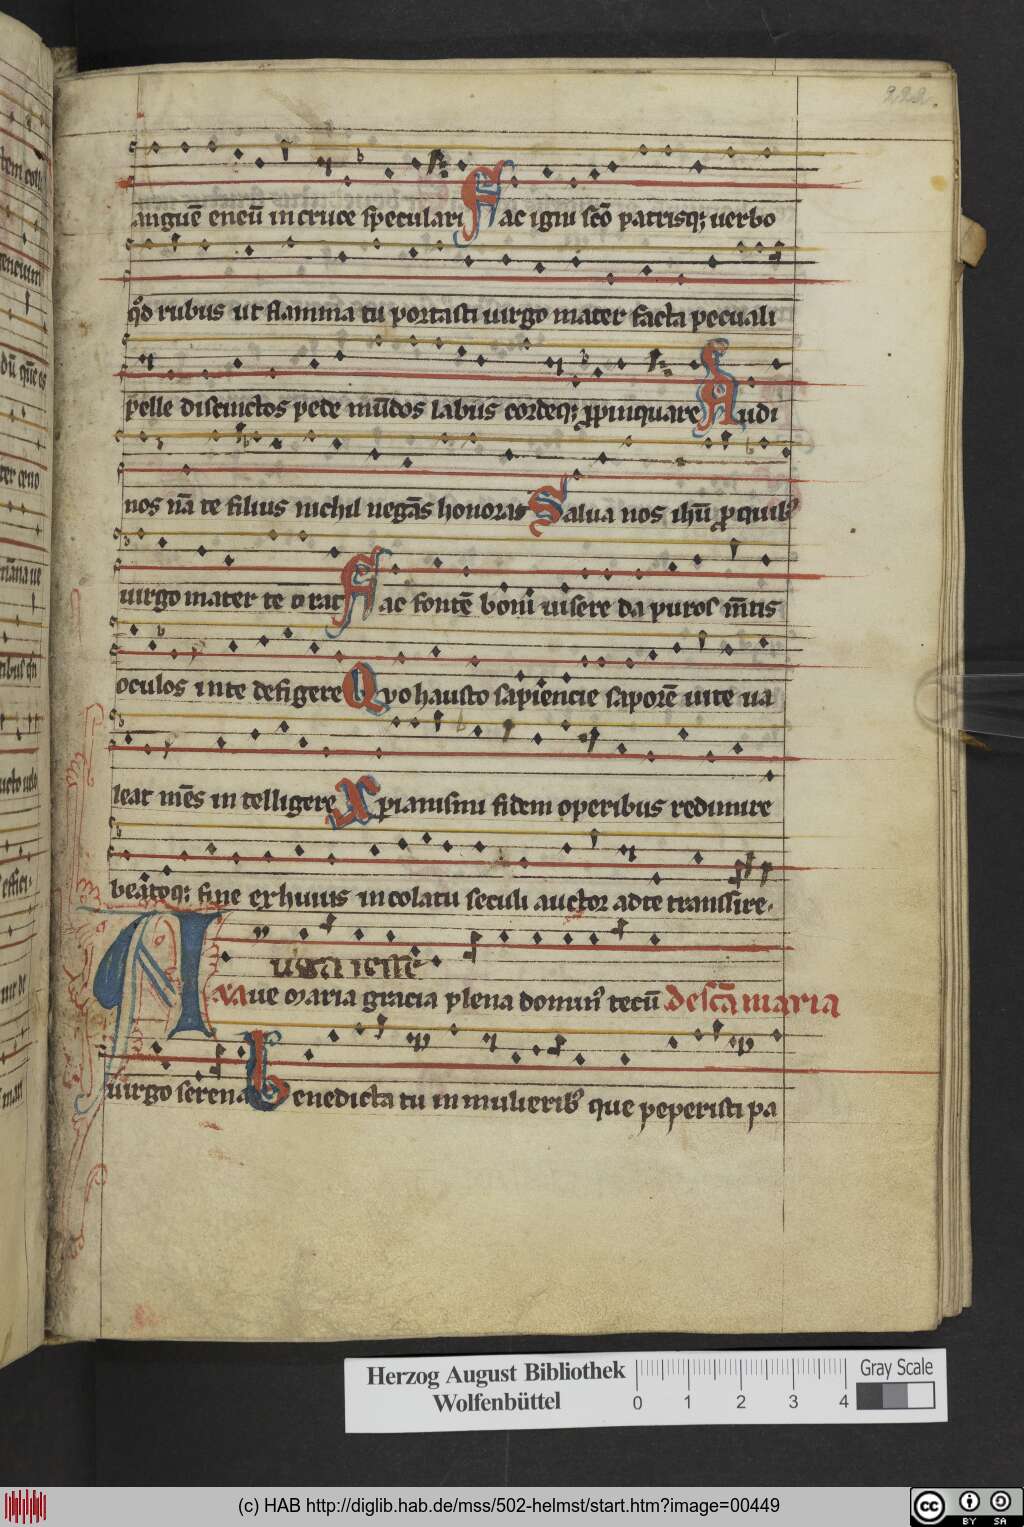 222.
anguē eneū in cruce speculari Fac igni scō patrisq; uerbo
qd rubus ut flamma tu portasti uirgo mater facta pecuali
pelle discinctos pede mūdos labiis cordeq; ꝓpinquare Audi
nos nā te filius nichil negās honorat Salua nos ihū ꝓ quib;
uirgo mater te orat Fac fontē boni uisere da puros mētis
oculos in te defigere Quo hausto sapiencie saporē uite ua
leat mēs in telligere Xpianismi fidem operibus redimire
beatoq; fine ex huius incolatu seculi auctor ad te transire.
uirga iesse
Aue maria gracia plena domin; tecū De scā maria
uirgo serena Benedicta tu in mulierib; que peperisti pa
Herzog August Bibliothek
Wolfenbüttel
0 1 2 3 4
Gray Scale
(c) HAB http://diglib.hab.de/mss/502-helmst/start.htm?image=00449
cc BY SA